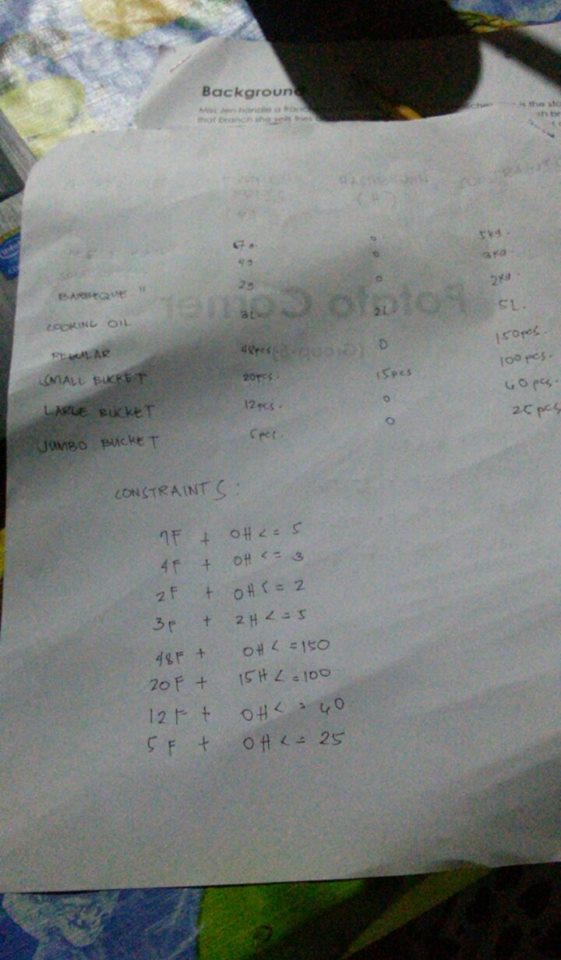 Background
Miss Jen handle a
is the
that branch she sells fries
5kg.
4g 0 3kg.
BARBEQUE " 2g 0 2kg.
COOKING OIL 3L 2L 5L.
REGULAR 48pcs 0 150pcs.
SMALL BUCKET 20pcs. 15pcs 100pcs.
LARGE BUCKET 12pcs. 0 40pcs.
JUMBO BUCKET 5pcs. 0 25pcs
Potato Corner
CONSTRAINTS:
7F + 0H <= 5
4F + 0H <= 3
2F + 0H <= 2
3F + 2H <= 5
48F + 0H <= 150
20F + 15H <= 100
12F + 0H <= 40
5F + 0H <= 25